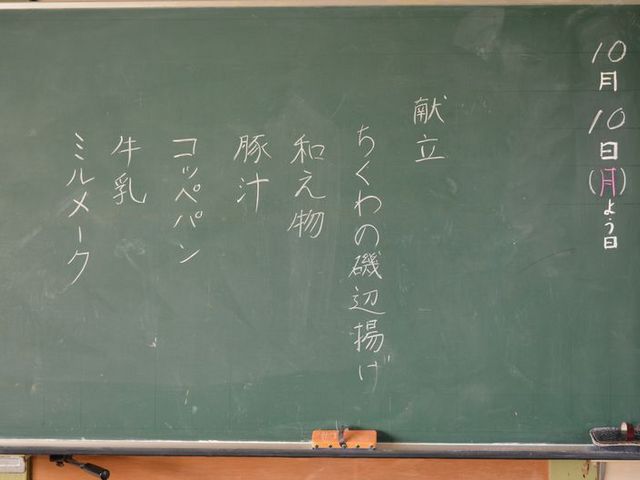 10月10日(月)よう日
献立
ちくわの磯辺揚げ
和え物
豚汁
コッペパン
牛乳
ミルメーク